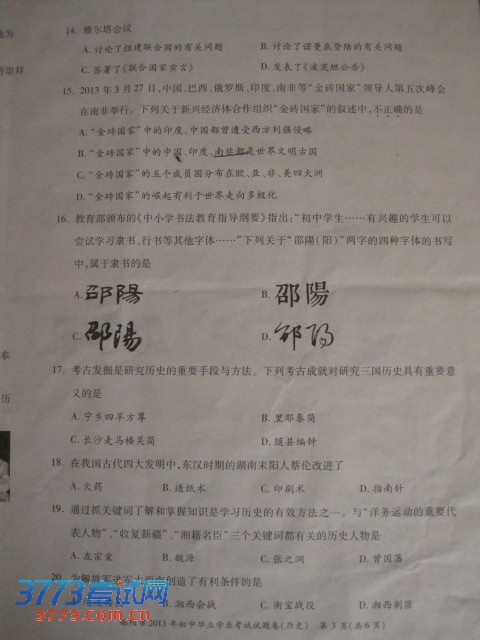 14. 雅尔塔会议
A. 讨论了组建联合国的有关问题 B. 讨论了诺曼底登陆的有关问题
C. 签署了《联合国家宣言》 D. 发表了《波茨坦公告》
15. 2013 年 3 月 27 日,中国、巴西、俄罗斯、印度、南非等“金砖国家”领导人第五次峰会
在南非举行。下列关于新兴经济体合作组织“金砖国家”的叙述中,不正确的是
A. “金砖国家”中的印度、中国都曾遭受西方列强侵略
B. “金砖国家”中的中国、印度、南非都是世界文明古国
C. “金砖国家”的五个成员国分布在欧、亚、非、美四大洲
D. “金砖国家”的崛起有利于世界走向多极化
16. 教育部颁布的《中小学书法教育指导纲要》指出:“初中学生……有兴趣的学生可以
尝试学习隶书、行书等其他字体……”下列关于“邵陽(阳)”两字的四种字体的书写
中,属于隶书的是
A. 邵陽 B. 邵陽
C. 邵陽 D. 邵阳
17. 考古发掘是研究历史的重要手段与方法。下列考古成就对研究三国历史具有重要意
义的是
A. 宁乡四羊方尊 B. 里耶秦简
C. 长沙走马楼吴简 D. 随县编钟
18. 在我国古代四大发明中,东汉时期的湖南耒阳人蔡伦改进了
A. 火药 B. 造纸术 C. 印刷术 D. 指南针
19. 通过抓关键词了解和掌握知识是学习历史的有效方法之一。与“洋务运动的重要代
表人物”、“收复新疆”、“湘籍名臣”三个关键词都有关的历史人物是
A. 左宗棠 B. 魏源 C. 张之洞 D. 曾国藩
20. 为解放军进军大西南创造了有利条件的是
B. 湘西会战 C. 衡宝战役 D. 湘西剿匪
邵阳市 2013 年初中毕业学业考试试题卷(历史) 第 3 页(共 6 页)
奉
历
3773考试网
www.3773.com.cn